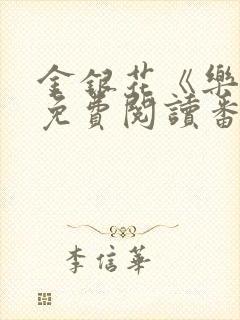 金銀花《樂
免費閱讀番
李信華